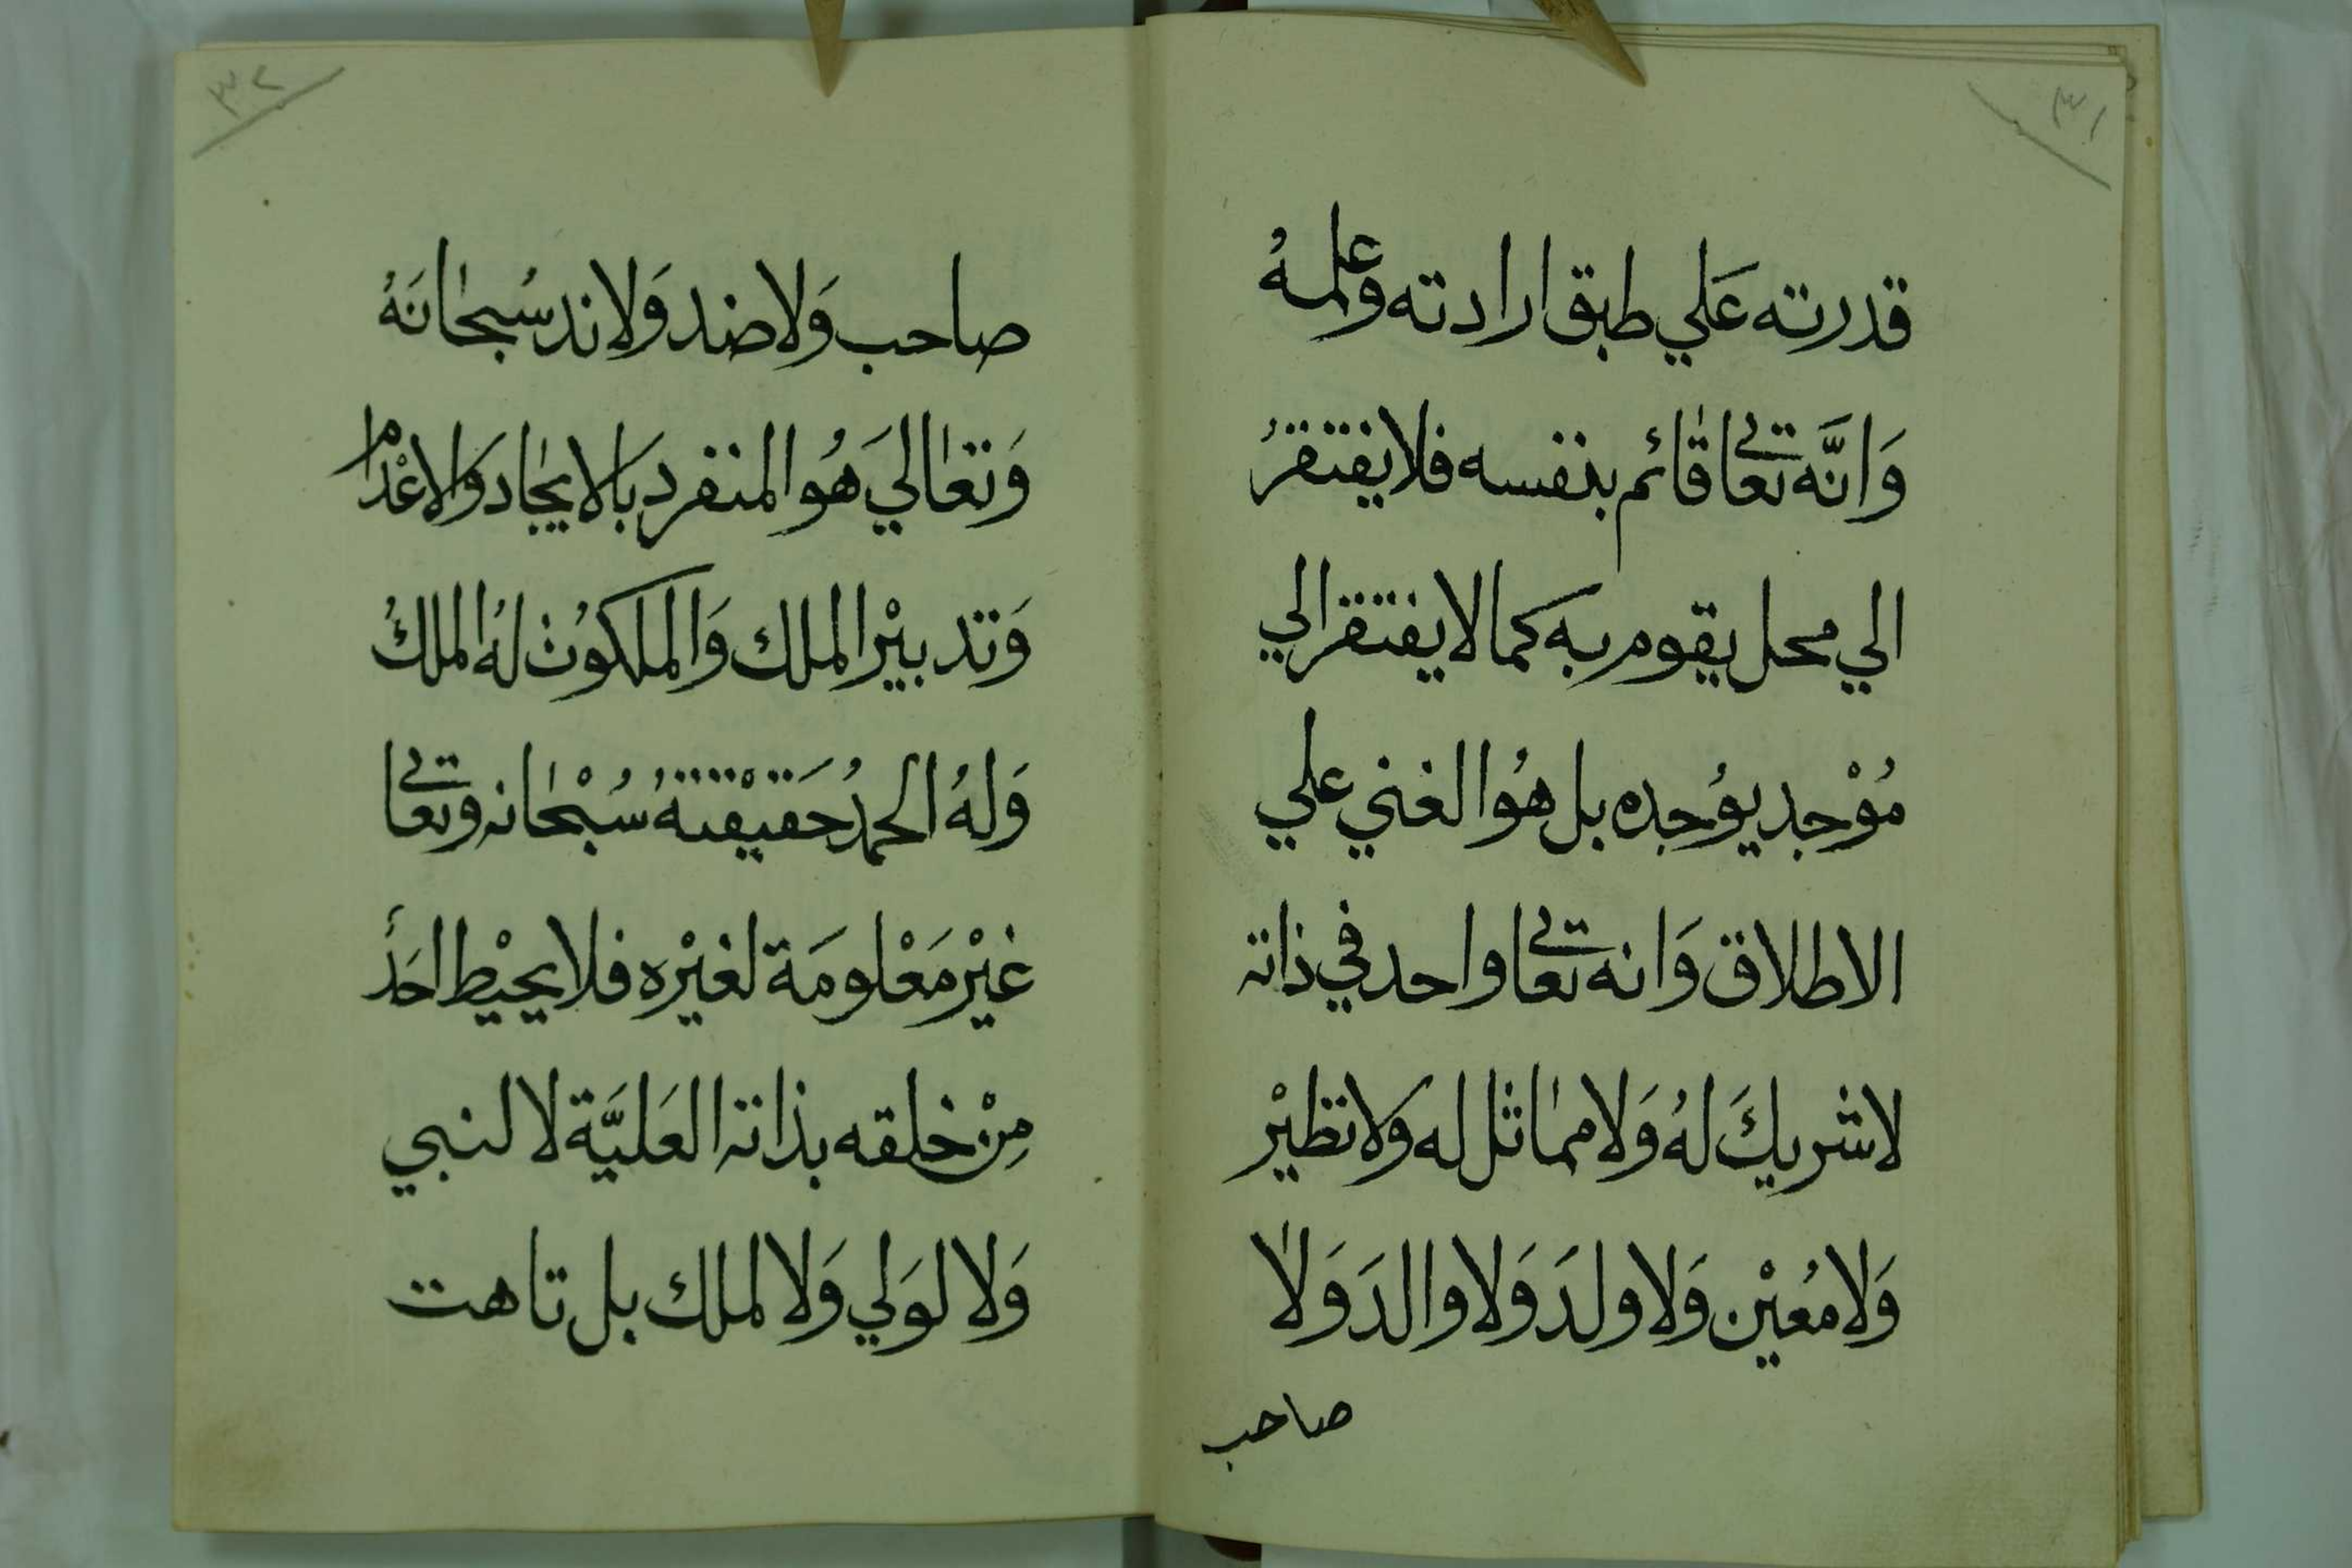 ٣١
قدرته عَلي طبق ارادته وعلمهُ
وَانَّه تعالى قائم بنفسه فلا يفتقرُ
الي محل يقوم به كما لا يفتقر الي
مُوْجد يوُجده بل هُوا لغني علي
الاطلاق وَانه تعالى واحد في ذاته
لاشريكَ لهُ وَلا مماثل له وَلا نظيْر
وَلا مُعيْن وَلا ولدَ وَلا والدَ وَلا
صاحب
٣٢
صاحب وَلا ضد وَلا ند سُبحانَهُ
وَتعالَي هُوا لمنفرد بَالايجاد وَالاعْدام
وَتدبيْر الملك وَالملكوُت لهُ الملكُ
وَلهُ الحمدُ حَقيْقتهُ سُبْحانه وتعالى
غيْر مَعْلومَة لغيْره فلا يحيْط احَدٌ
مِنْ خلقه بذاته العَليَّة لا لنبي
وَلا لوَلي وَلا لملك بل تاهت